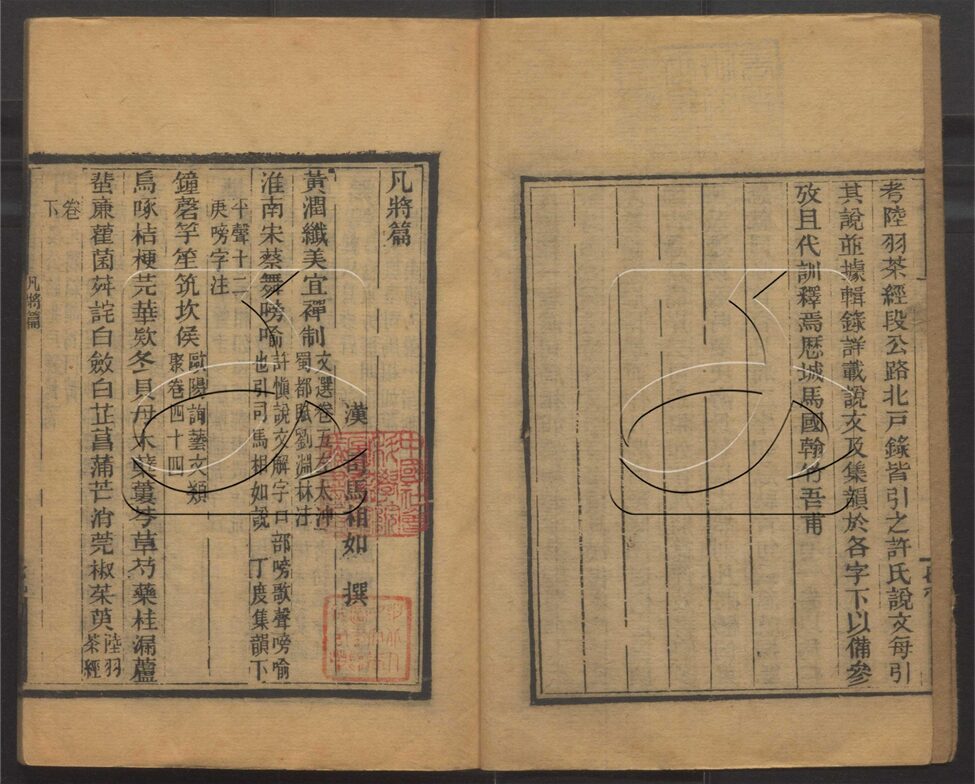 考陸羽茶經段公路北戸錄皆引之許氏說文每引
其說並據輯錄詳載說文及集韻於各字下以備參
攷且代訓釋焉歴城馬國翰竹吾甫
凡將篇
漢 司馬相如 撰
黃潤纖美宜禪制文選卷五左太沖
蜀都賦劉淵林注
淮南宋蔡舞嗙喻許愼說文解字口部嗙歌聲嗙喻
也引司馬相如說 丁度集韻下
平聲十二
庚嗙字注
鐘磬竽笙筑坎侯歐陽詢藝文類
聚卷四十四
烏啄桔梗芫華款冬貝母木蘗蔞芩草芍藥桂漏蘆
蜚廉雚菌荈詫白斂白芷菖蒲芒消莞椒茱萸陸羽
茶經
卷
下
凡將篇